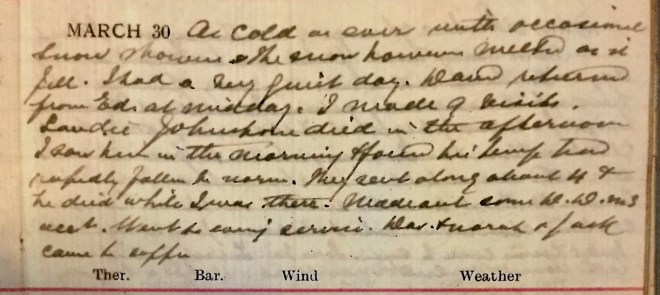 MARCH 30 As cold as ever with occasional
snow showers & the snow however melted as it
fell. I had a very quiet day. David returned
from Ed. at midday. I made 9 visits.
Johnstone died in the afternoon
I saw him in the morning & found his temp had
rapidly fallen to norm. They sent along about 4 &
he died while I was there. Made out some
cert. Went to evening service. Dav. & Norah & Jack
came to supper
Ther. Bar. Wind Weather